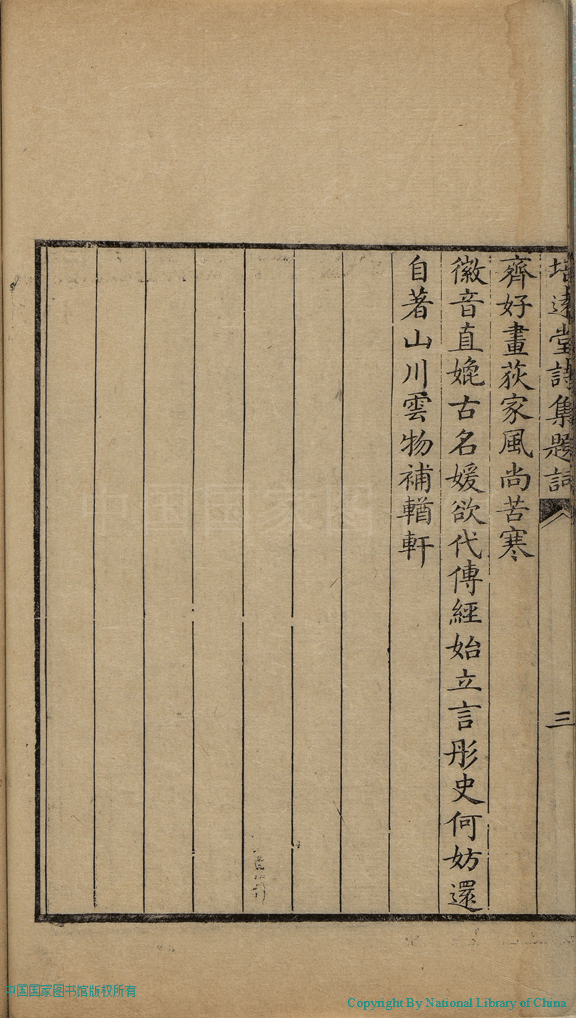 培遠堂詩集題詞
三
齊好畫荻家風尚苦寒
徽音直媲古名媛欲代傳經始立言彤史何妨還
自著山川雲物補輶軒
中国国家图书馆版权所有
Copyright By National Library of China